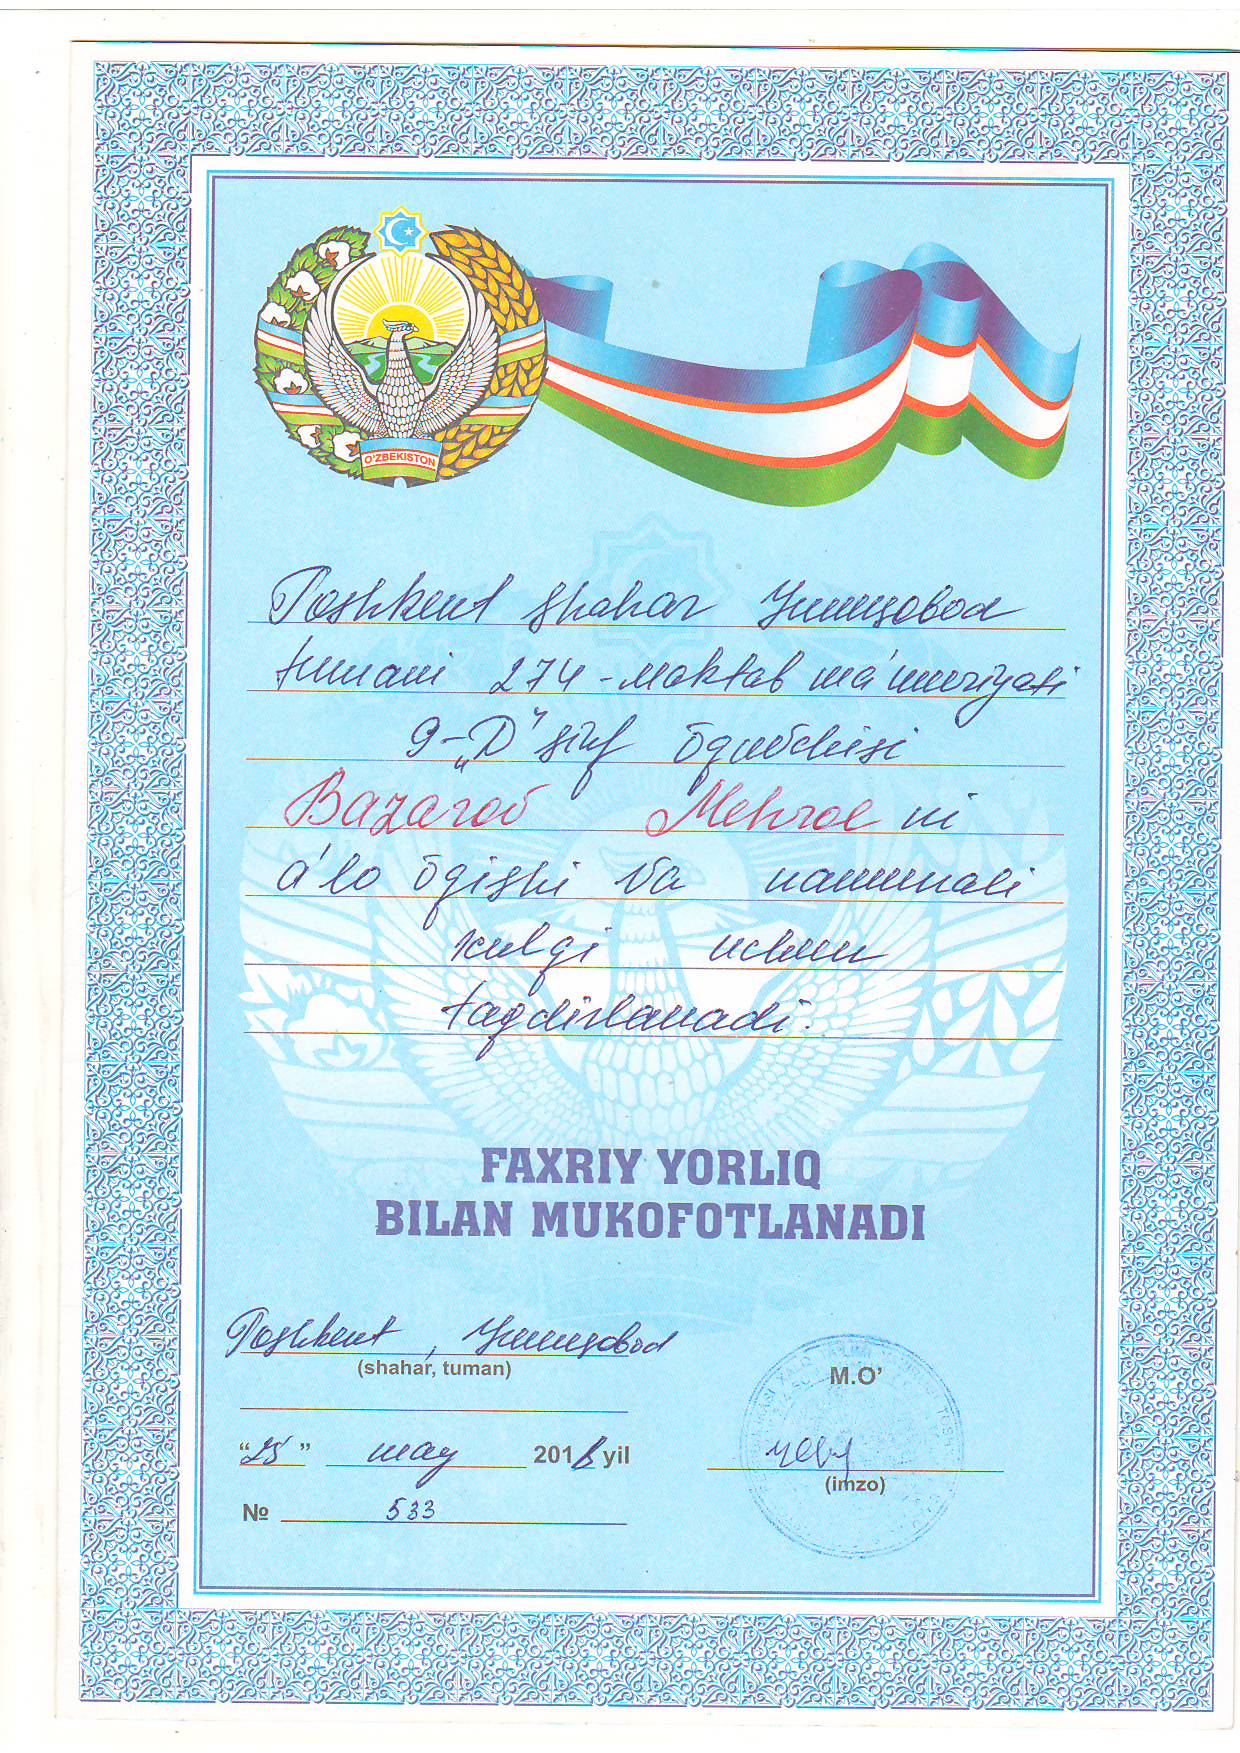 O'ZBEKISTON
Toshkent shahar Yunusobod
tumani 274-maktab ma'muriyati
9-„D" sinf o̅quvchisi
Bazarov Mehrol ni
a'lo o̅qishi va namunali
xulqi uchun
taqdirlanadi.
FAXRIY YORLIQ
BILAN MUKOFOTLANADI
Toshkent, Yunusobod
(shahar, tuman)
M.O'
"25" may 2018 yil
(imzo)
№ 533